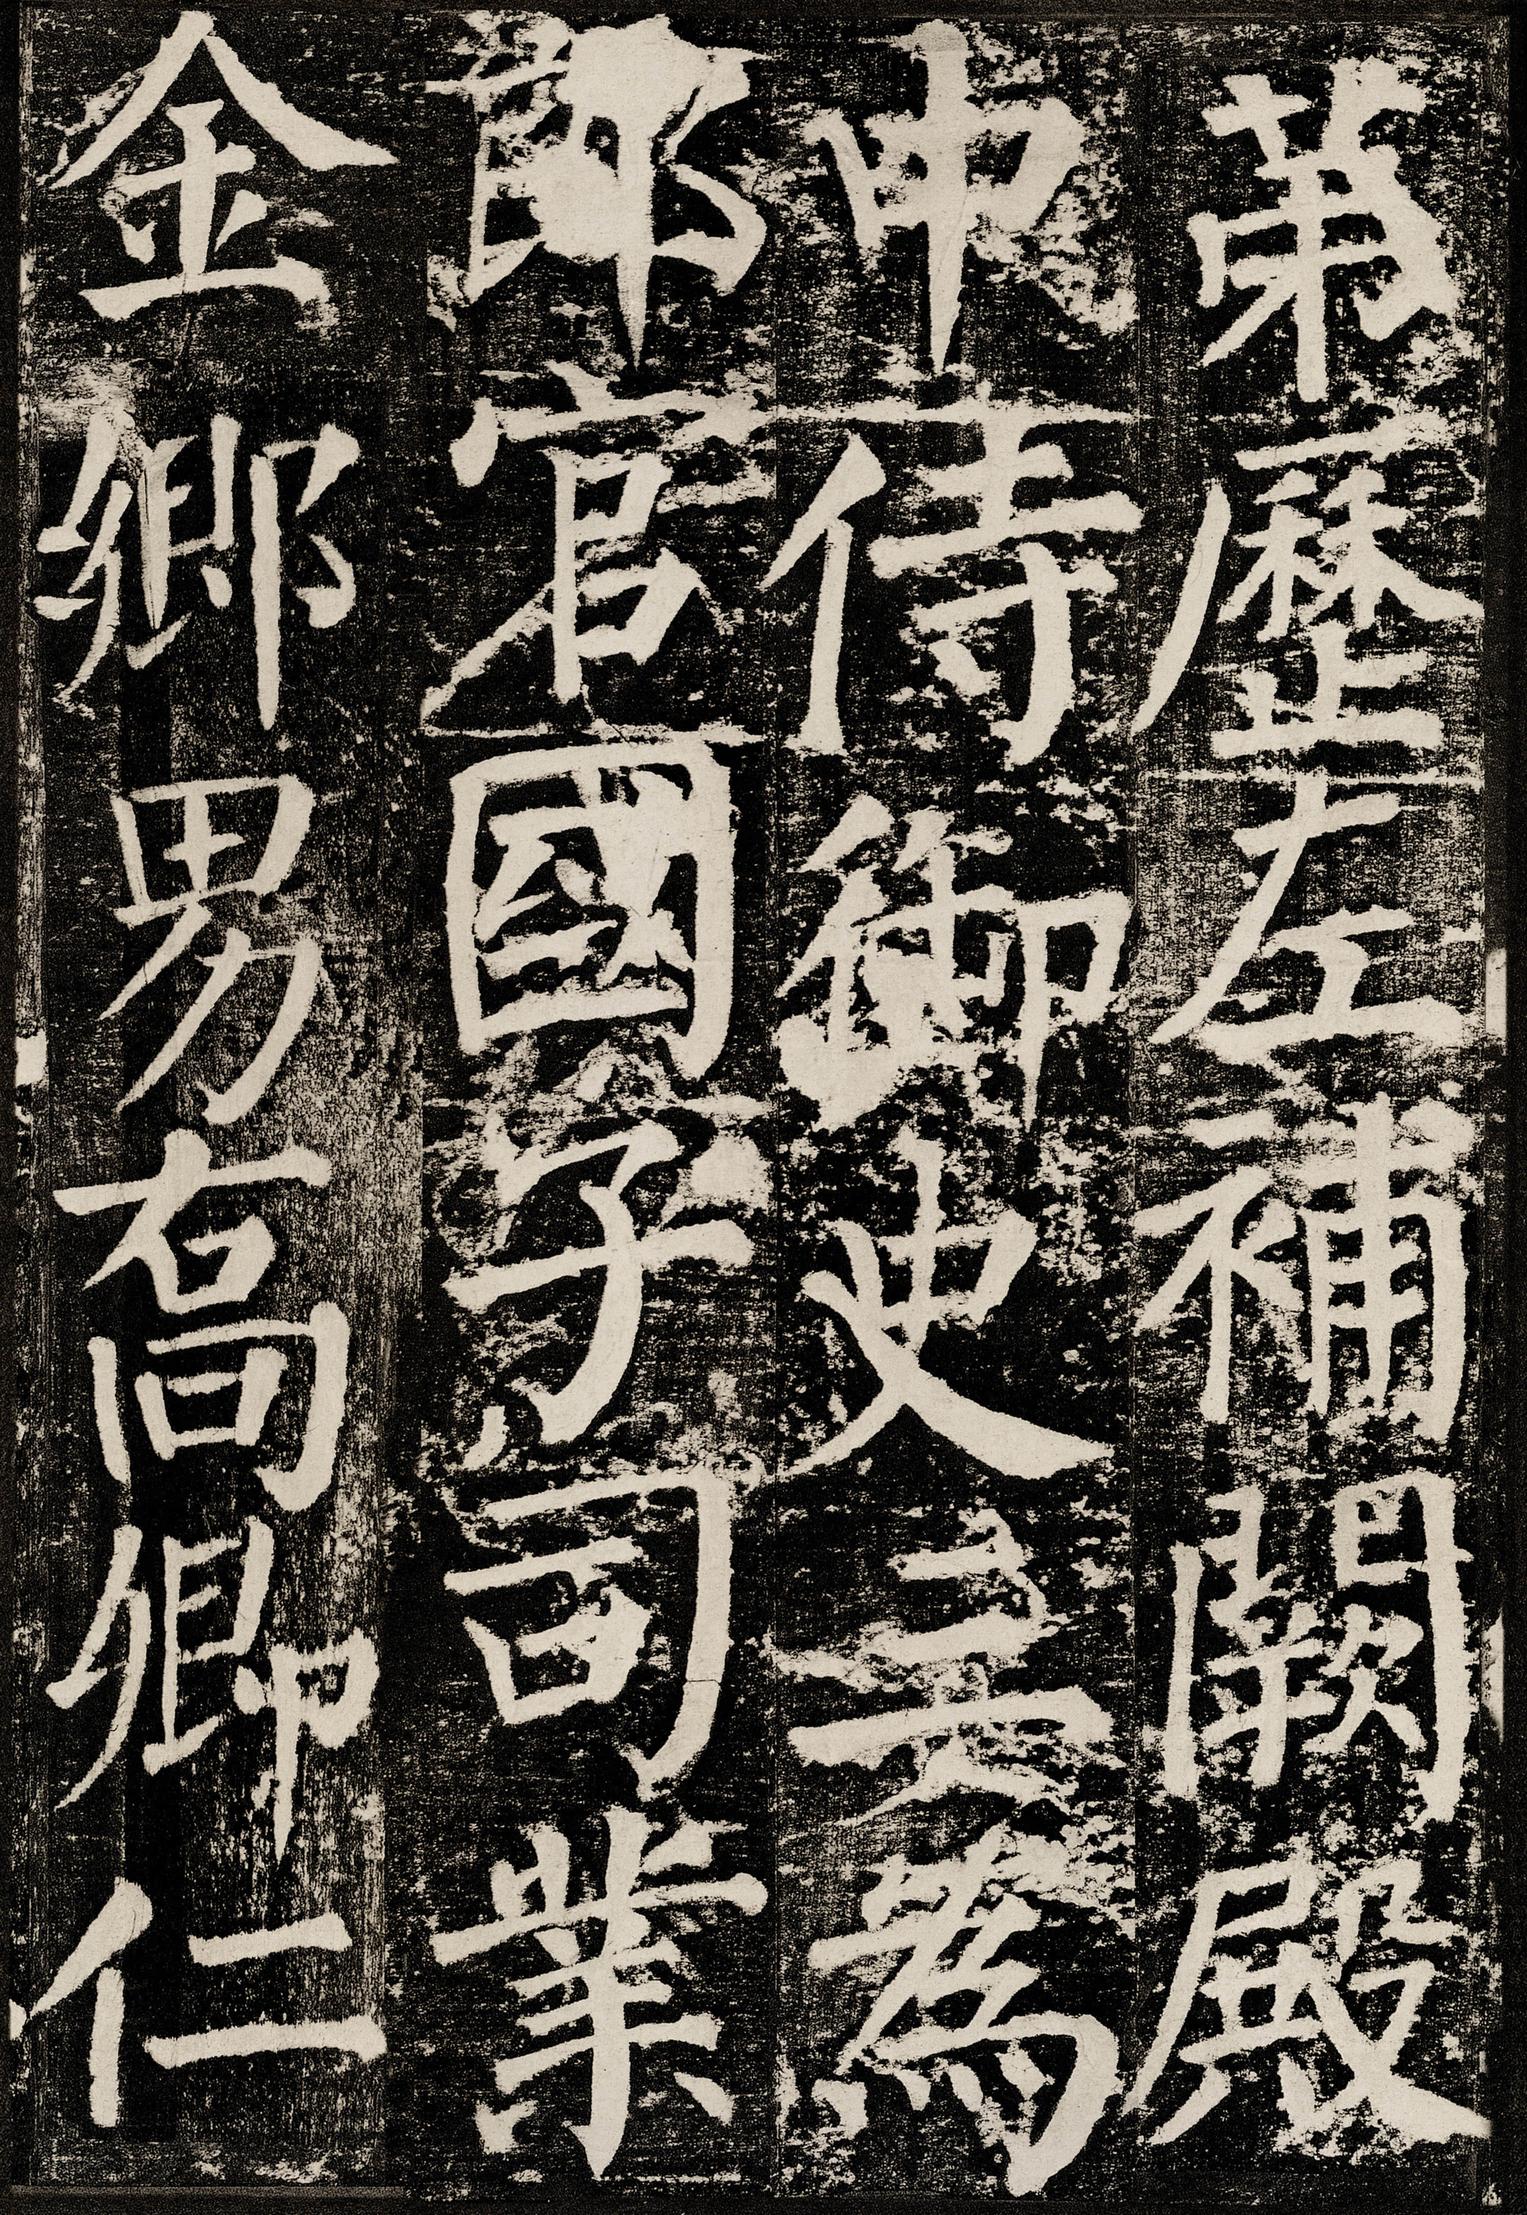 第歷左補闕殿
中侍御史三為
郎官國子司業
金鄉男喬卿仁